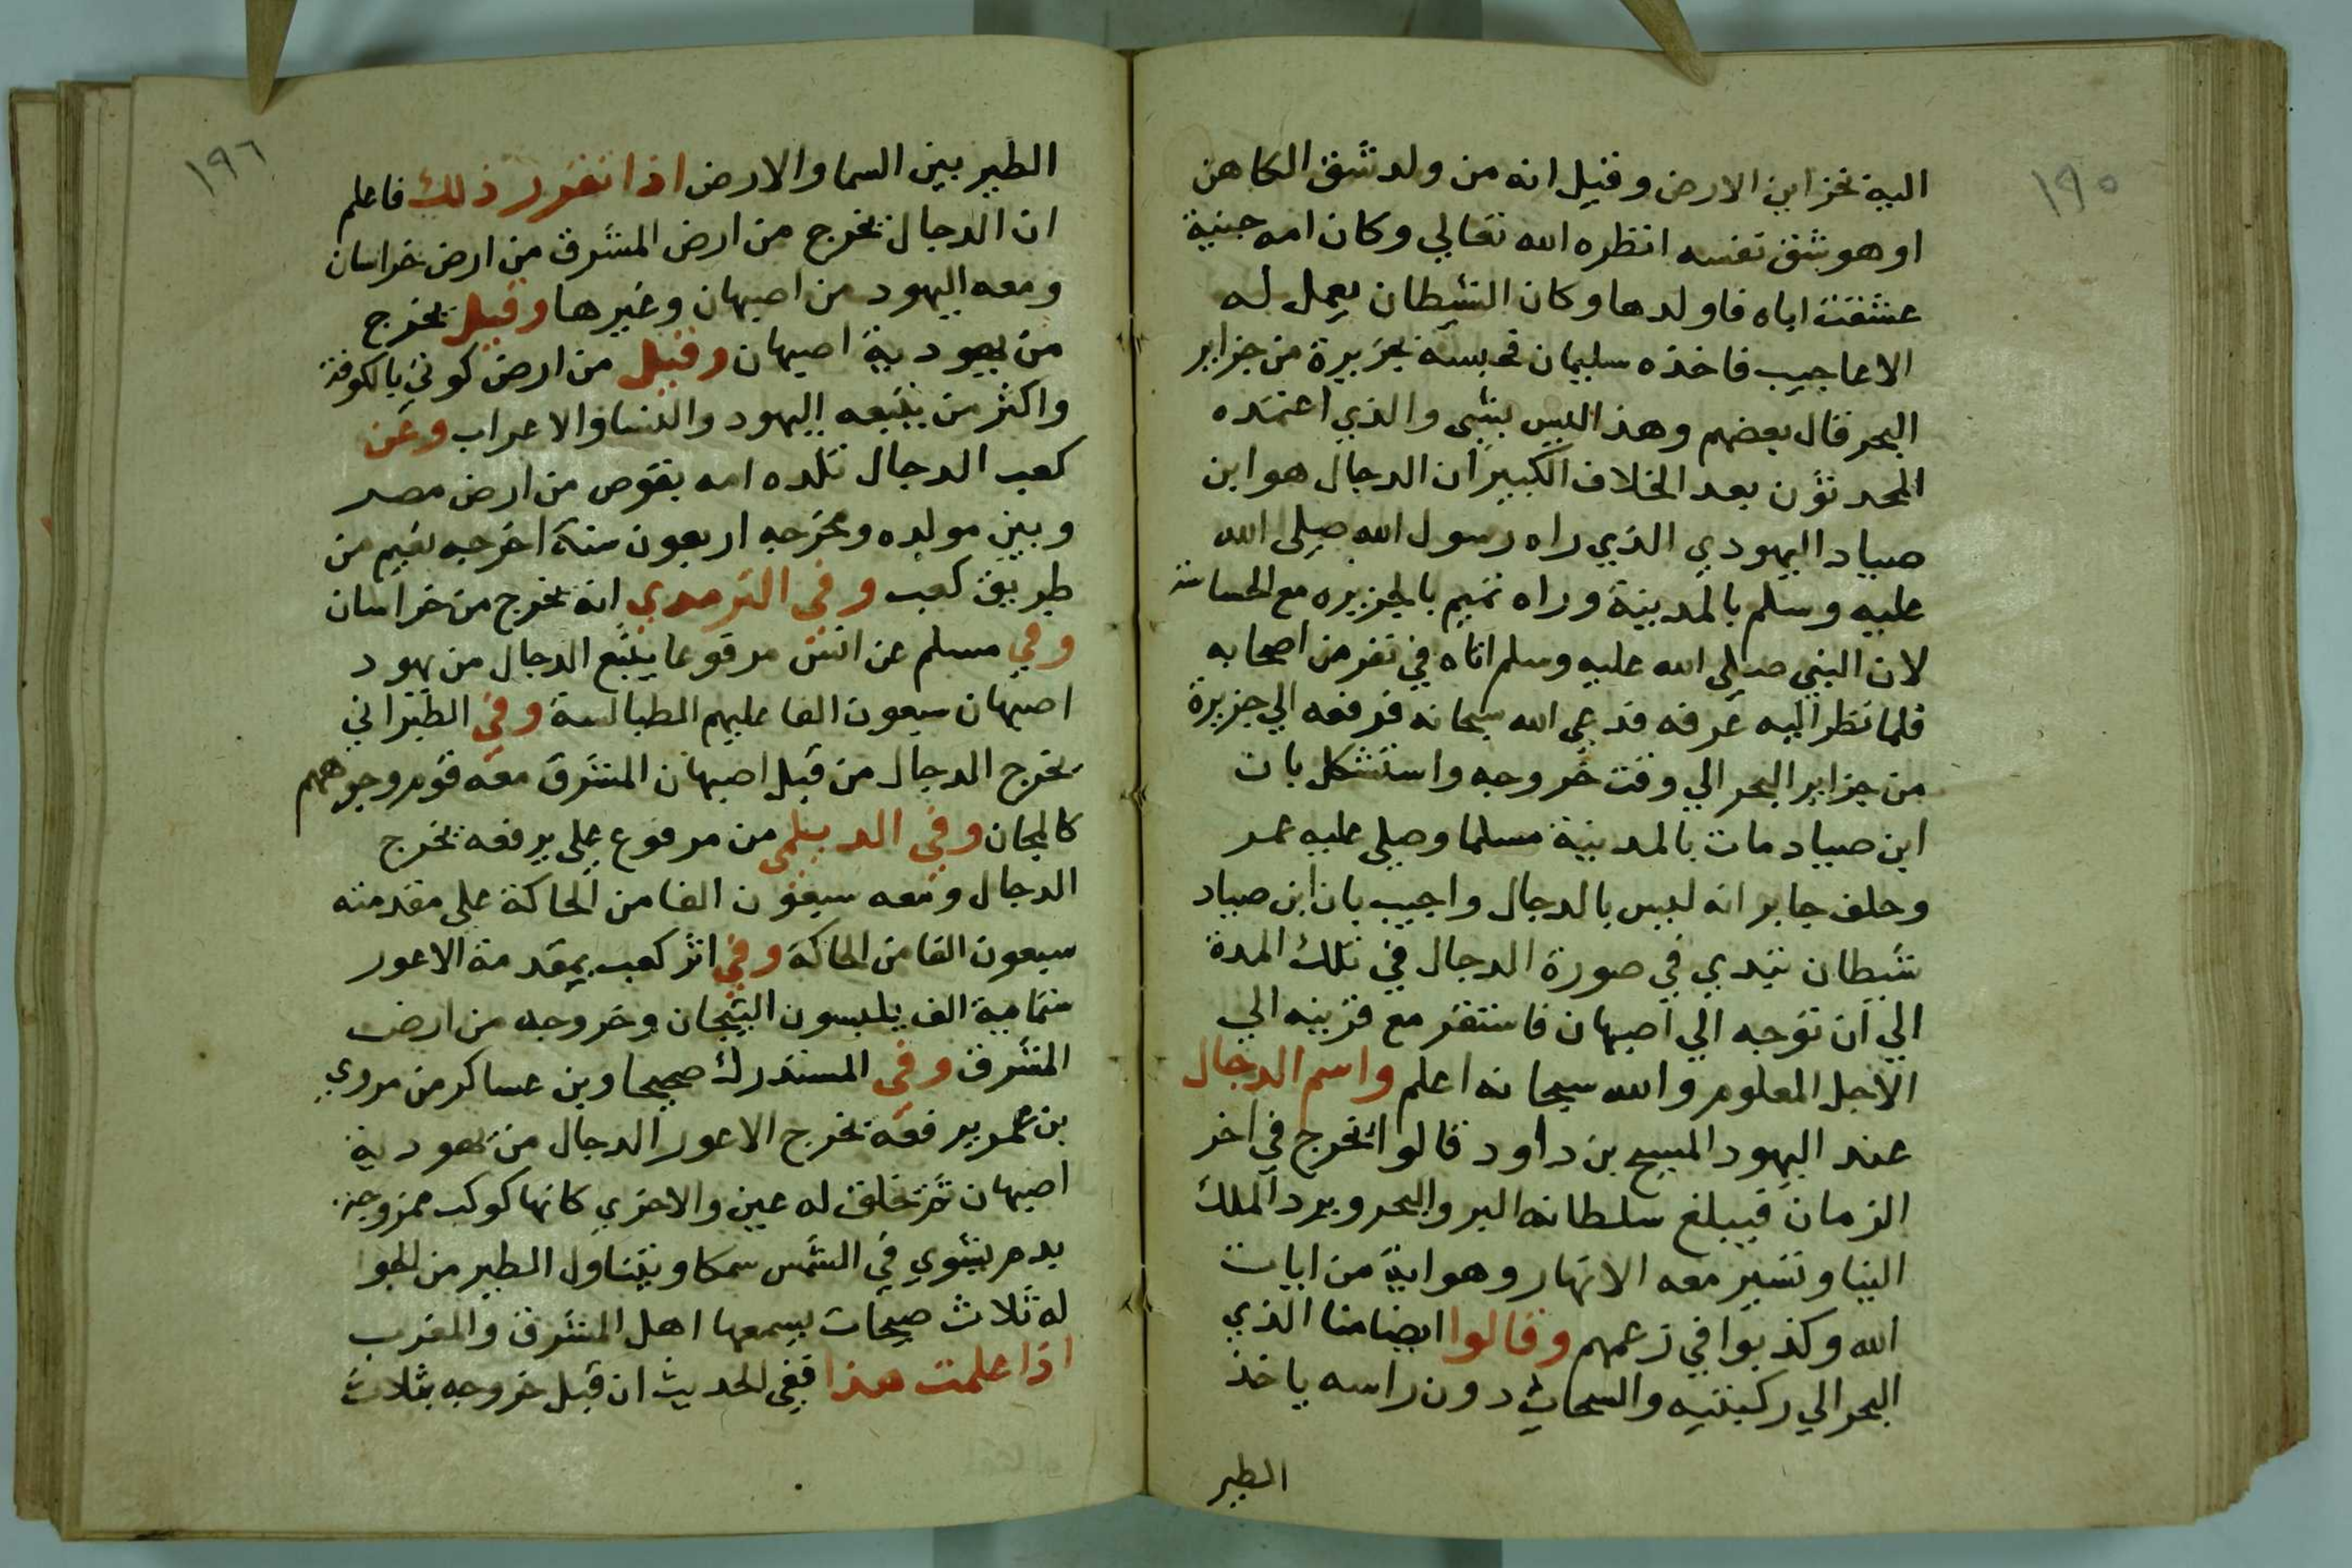 ١٩٥
اليه نخزاين الارض وقيل انه من ولد شق الكاهن
او هو شق نفسه انظره الله تعالي وكان امه جنية
عشقت اباه فاولدها وكان الشيطان يعمل له
الاعاجيب فاخذه سليمان فحبسه بجزيرة من جزاير
البحر قال بعضهم وهذا ليس بشي والذي اعتمده
المحدثون بعد الخلاف الكبير ان الدجال هو ابن
صياد اليهودي الذي راه رسول الله صلى الله
عليه وسلم بالمدينة وراه تميم بالجزيره مع الجساسة
لان النبي صلى الله عليه وسلم اتاه في نفر من اصحابه
فلما نظر اليه عرفه فدعى الله سبحانه فرفعه الي جزيرة
من جزاير البحر الي وقت خروجه واستشكل بان
ابن صياد مات بالمدينة مسلما وصلي عليه عمر
وحلف جابر انه ليس بالدجال واجيب بان ابن صياد
شيطان تبدي في صورة الدجال في تلك المدة
الي ان توجه الي اصبهان فاستقر مع قرينه الي
الاجل المعلوم والله سبحانه اعلم واسم الدجال
عند اليهود المسيح بن داود قالوا نخرج في اخر
الزمان فيبلغ سلطانه البر والبحر ويرد الملك
الينا وتسير معه الانهار وهو اية من ايات
الله وكذبوا في زعمهم وقالوا ايضا منا الذي
البحر الي ركبتيه والسحاب دون راسه ياخذ
الطير
١٩٦
الطير بين السما والارض اذا تقرر ذلك فاعلم
ان الدجال يخرج من ارض المشرق من ارض خراسان
ومعه اليهود من اصبهان وغيرها وقيل يخرج
من يهودية اصبهان وقيل من ارض كوثي بالكوفة
واكثر من يتبعه اليهود والنسا والاعراب وعن
كعب الدجال تلده امه بقوص من ارض مصر
وبين مولده ومخرجه اربعون سنة اخرجه نعيم من
طريق كعب وفي الترمدي انه يخرج من خراسان
وفي مسلم عن انس مرفوعا يتبع الدجال من يهود
اصبهان سبعون الفا عليهم الطيالسة وفي الطبراني
يخرج الدجال من قبل اصبهان المشرق معه قوم وجوههم
كالمجان وفي الديلمي من مرفوع علي يرفعه يخرج
الدجال ومعه سبعون الفا من الحاكة علي مقدمته
سبعون الفا من الحاكة وفي اثر كعب بمقدمة الاعور
ستماية الف يلبسون التيجان وخروجه من ارض
المشرق وفي المستدرك صحيحا وبن عساكر من مروي
بن عمر يرفعه يخرج الاعور الدجال من يهودية
اصبهان ثم تخلق له عين والاخري كانها كوكب ممزوجة
بدم يشوي في الشمس سمكا ويتناول الطير من الجوا
له ثلاث صيحات يسمعها اهل المشرق والمغرب
اذا علمت هذا ففي الحديث ان قبل خروجه بثلاث